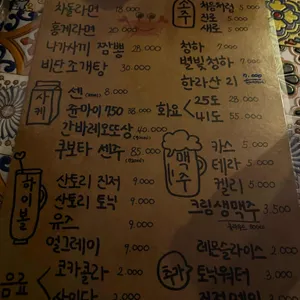 차돌라면 18.000
홍게라면 30.000
나가사끼 짬뽕 28.000
비단조개탕 30.000
소주
처음처럼
진로
새로
5.000
청하
별빛청하 7.000
한라산 21 7.000
화요 25도 28.000
41도 55.000
사케
센
쥰마이 750 38.000
간바레오또상 40.000
쿠보타 센쥬 85.000
맥주
카스
테라
켈리
5.000
크림생맥주 3.500
하이볼
산토리 진저 9.000
산토리 토닉 9.000
유즈 9.000
얼그레이 9.000
음료
코카콜라 2.000
추가
레몬슬라이스 2.000
토닉워터 3.000